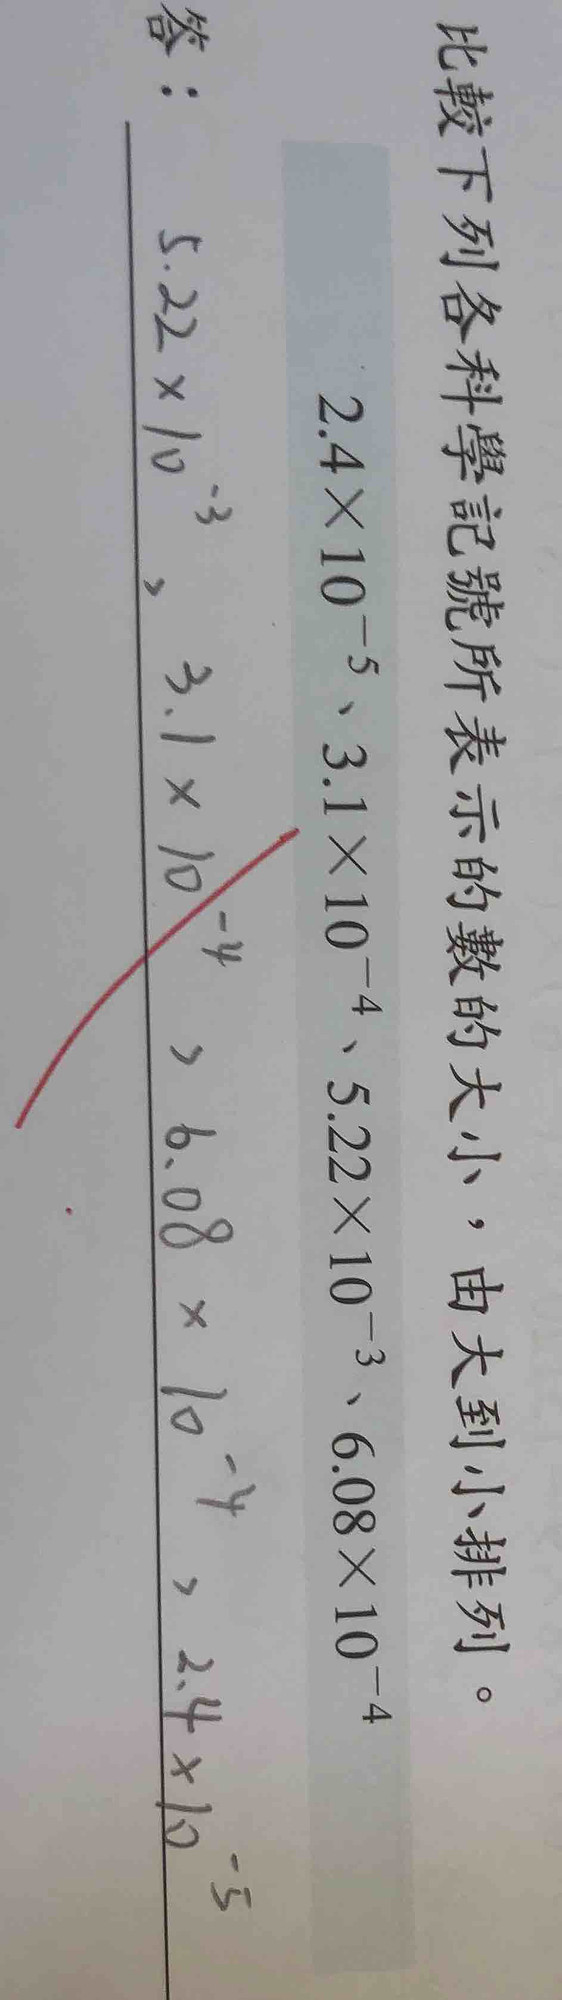 比較下列各科學記號所表示的數的大小，由大到小排列。
2.4×10⁻⁵、3.1×10⁻⁴、5.22×10⁻³、6.08×10⁻⁴
答： 5.22×10⁻³ , 3.1×10⁻⁴ , 6.08×10⁻⁴ , 2.4×10⁻⁵